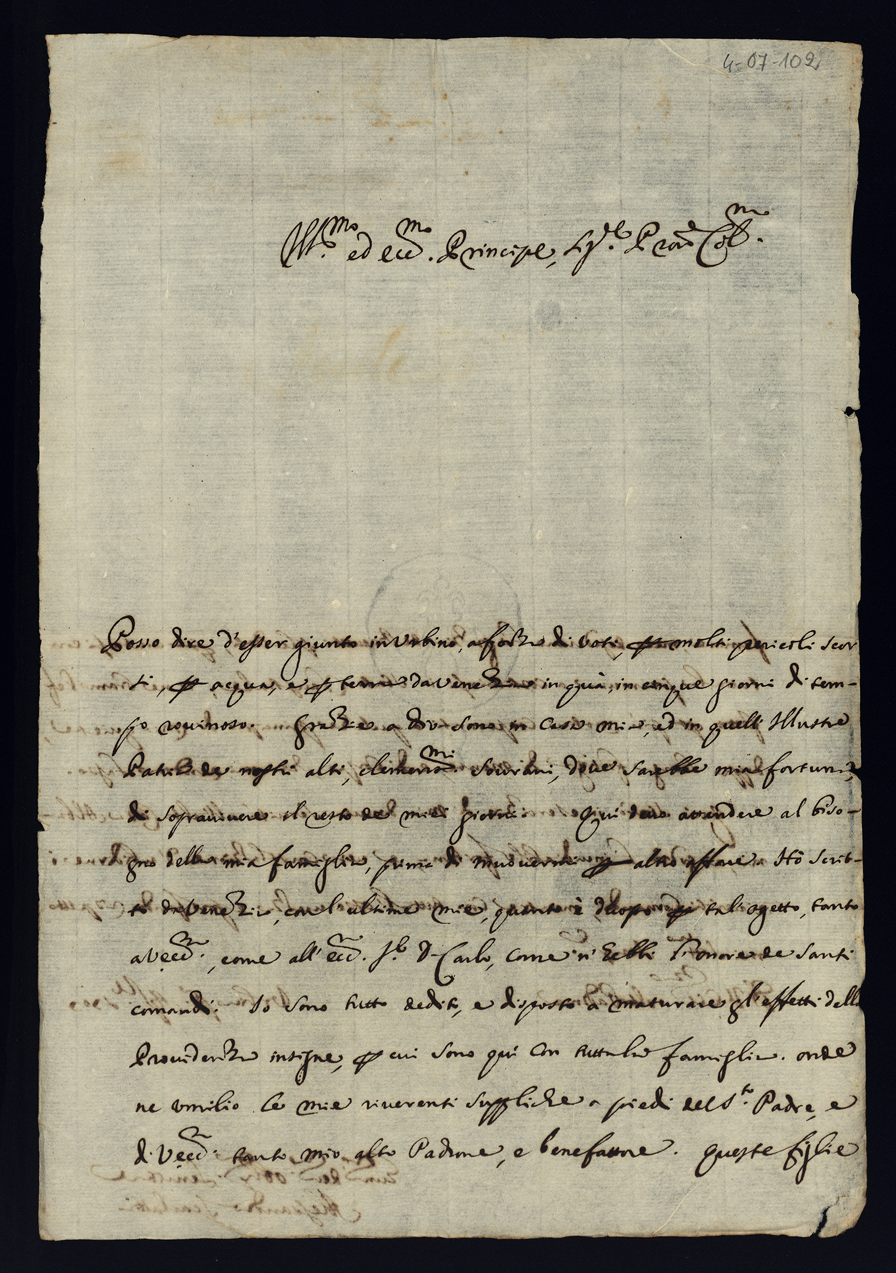 4-07-102
Ill.mo ed ecc.mo Principe, Sig.re Pron Col.mo
Posso dire d'esser giunto in Urbino, a forza di voti, per molti pericoli scor
si, per acqua, e per terra da Venezia in quà, in cinque giorni di tem-
po rovinoso. Grazie a dio sono in Casa mia, ed in quest'Illustre
Patria de nostri alti, clementi.mi Sovrani, dove sarebbe mia fortuna,
di sopravivere il resto de miei giorni. Qui devo attendere al biso-
gno della mia famiglia, prima di muovermi per altro affare. Hò scrit-
to da Venezia, con l'ultima mia, quanto è d'uopo per tal ogetto, tanto
a V. ecc.a, come all'ecc.mo Sig. D. Carlo, come n'hebbi l'onore de santi
comandi. Io sono tutto dedito, e disposto a maturare gl'effetti della
Providenza insigne, per cui sono qui con tutta la famiglia. onde
ne umilio le mie riverenti suppliche a piedi del S.to Padre, e
di V. ecc.a tanto mio alto Padrone, e benefattore. queste figlie